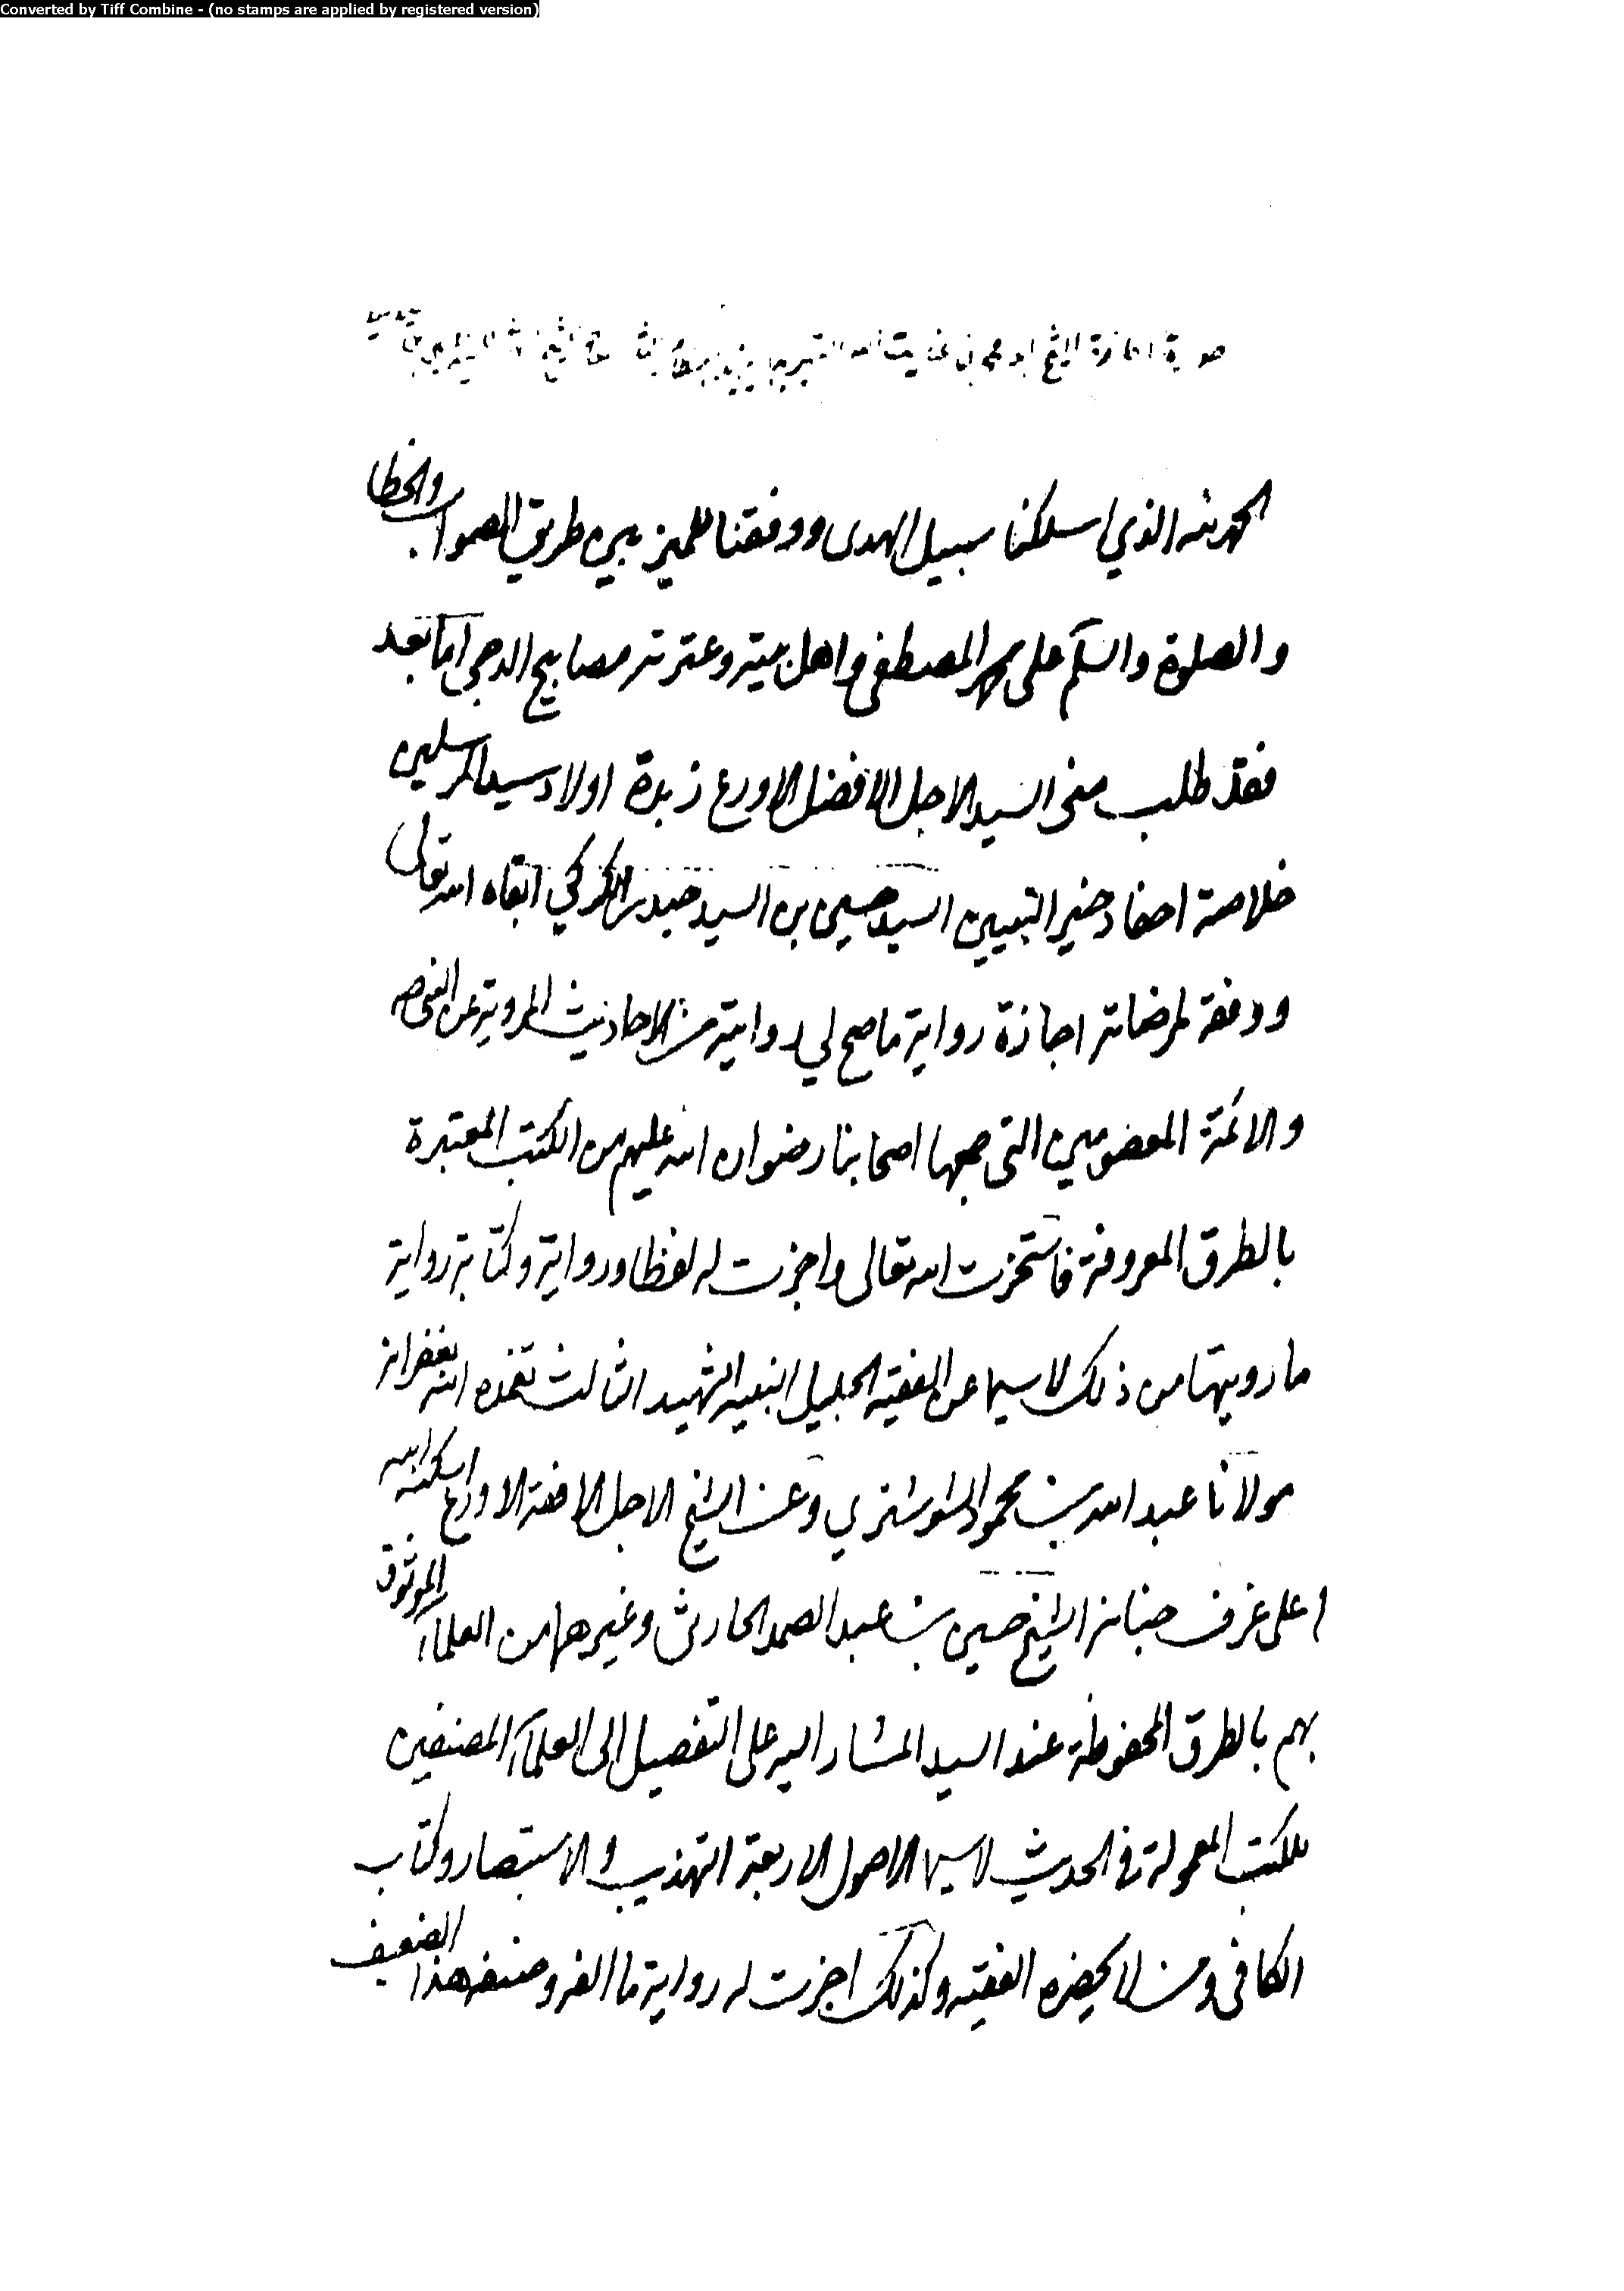 Converted by Tiff Combine - (no stamps are applied by registered version)
صورة اجازة الشيخ ابو محمد بن عنايت الله
الحمد لله الذي اسلكنا سبيل الهدى ووفقنا للميز بين طريق الصواب والخطا
والصلوة والسلم على محمد المصطفى واهل بيته وعترته مصابيح الدجى اما بعد
فقد طلب منى السيد الاجل الافضل الاورع زبدة اولاد سيد المرسلين
خلاصة احفاد خير النبيين السيد حسين بن السيد حيدر الكركي ابقاه الله تعالى
ووفقه لمرضاته اجازة رواية ما صح لي روايته من الاحاديث المروية عن النبى ص
والائمة المعصومين التى جمعها اصحابنا رضوان الله عليهم من الكتب المعتبرة
بالطرق المعروفة فاستخرت الله تعالى واجزت له لفظا ورواية وكتابة رواية
ما رويتها من ذلك لا سيما عن الفقيه الجليل النبيه الشهيد الثالث تغمده الله بغفرانه
مولانا عبد الله بن محمود الشوشتري وعن الشيخ الاجل الافقه الاورع اسكنه الله
اعلى غرف جنانه الشيخ حسين بن عبد الصمد الحارثى وغيرهما من العلماء الموثوق
بهم بالطرق المحفوظة عند السيد المشار اليه على التفصيل الى العلماء المصنفين
للكتب المعمولة فى الحديث لا سيما الاصول الاربعة التهذيب والاستبصار وكتاب
الكافى ومن لا يحضره الفقيه وكذلك اجزت له رواية ما الفه وصنفه هذا الضعيف